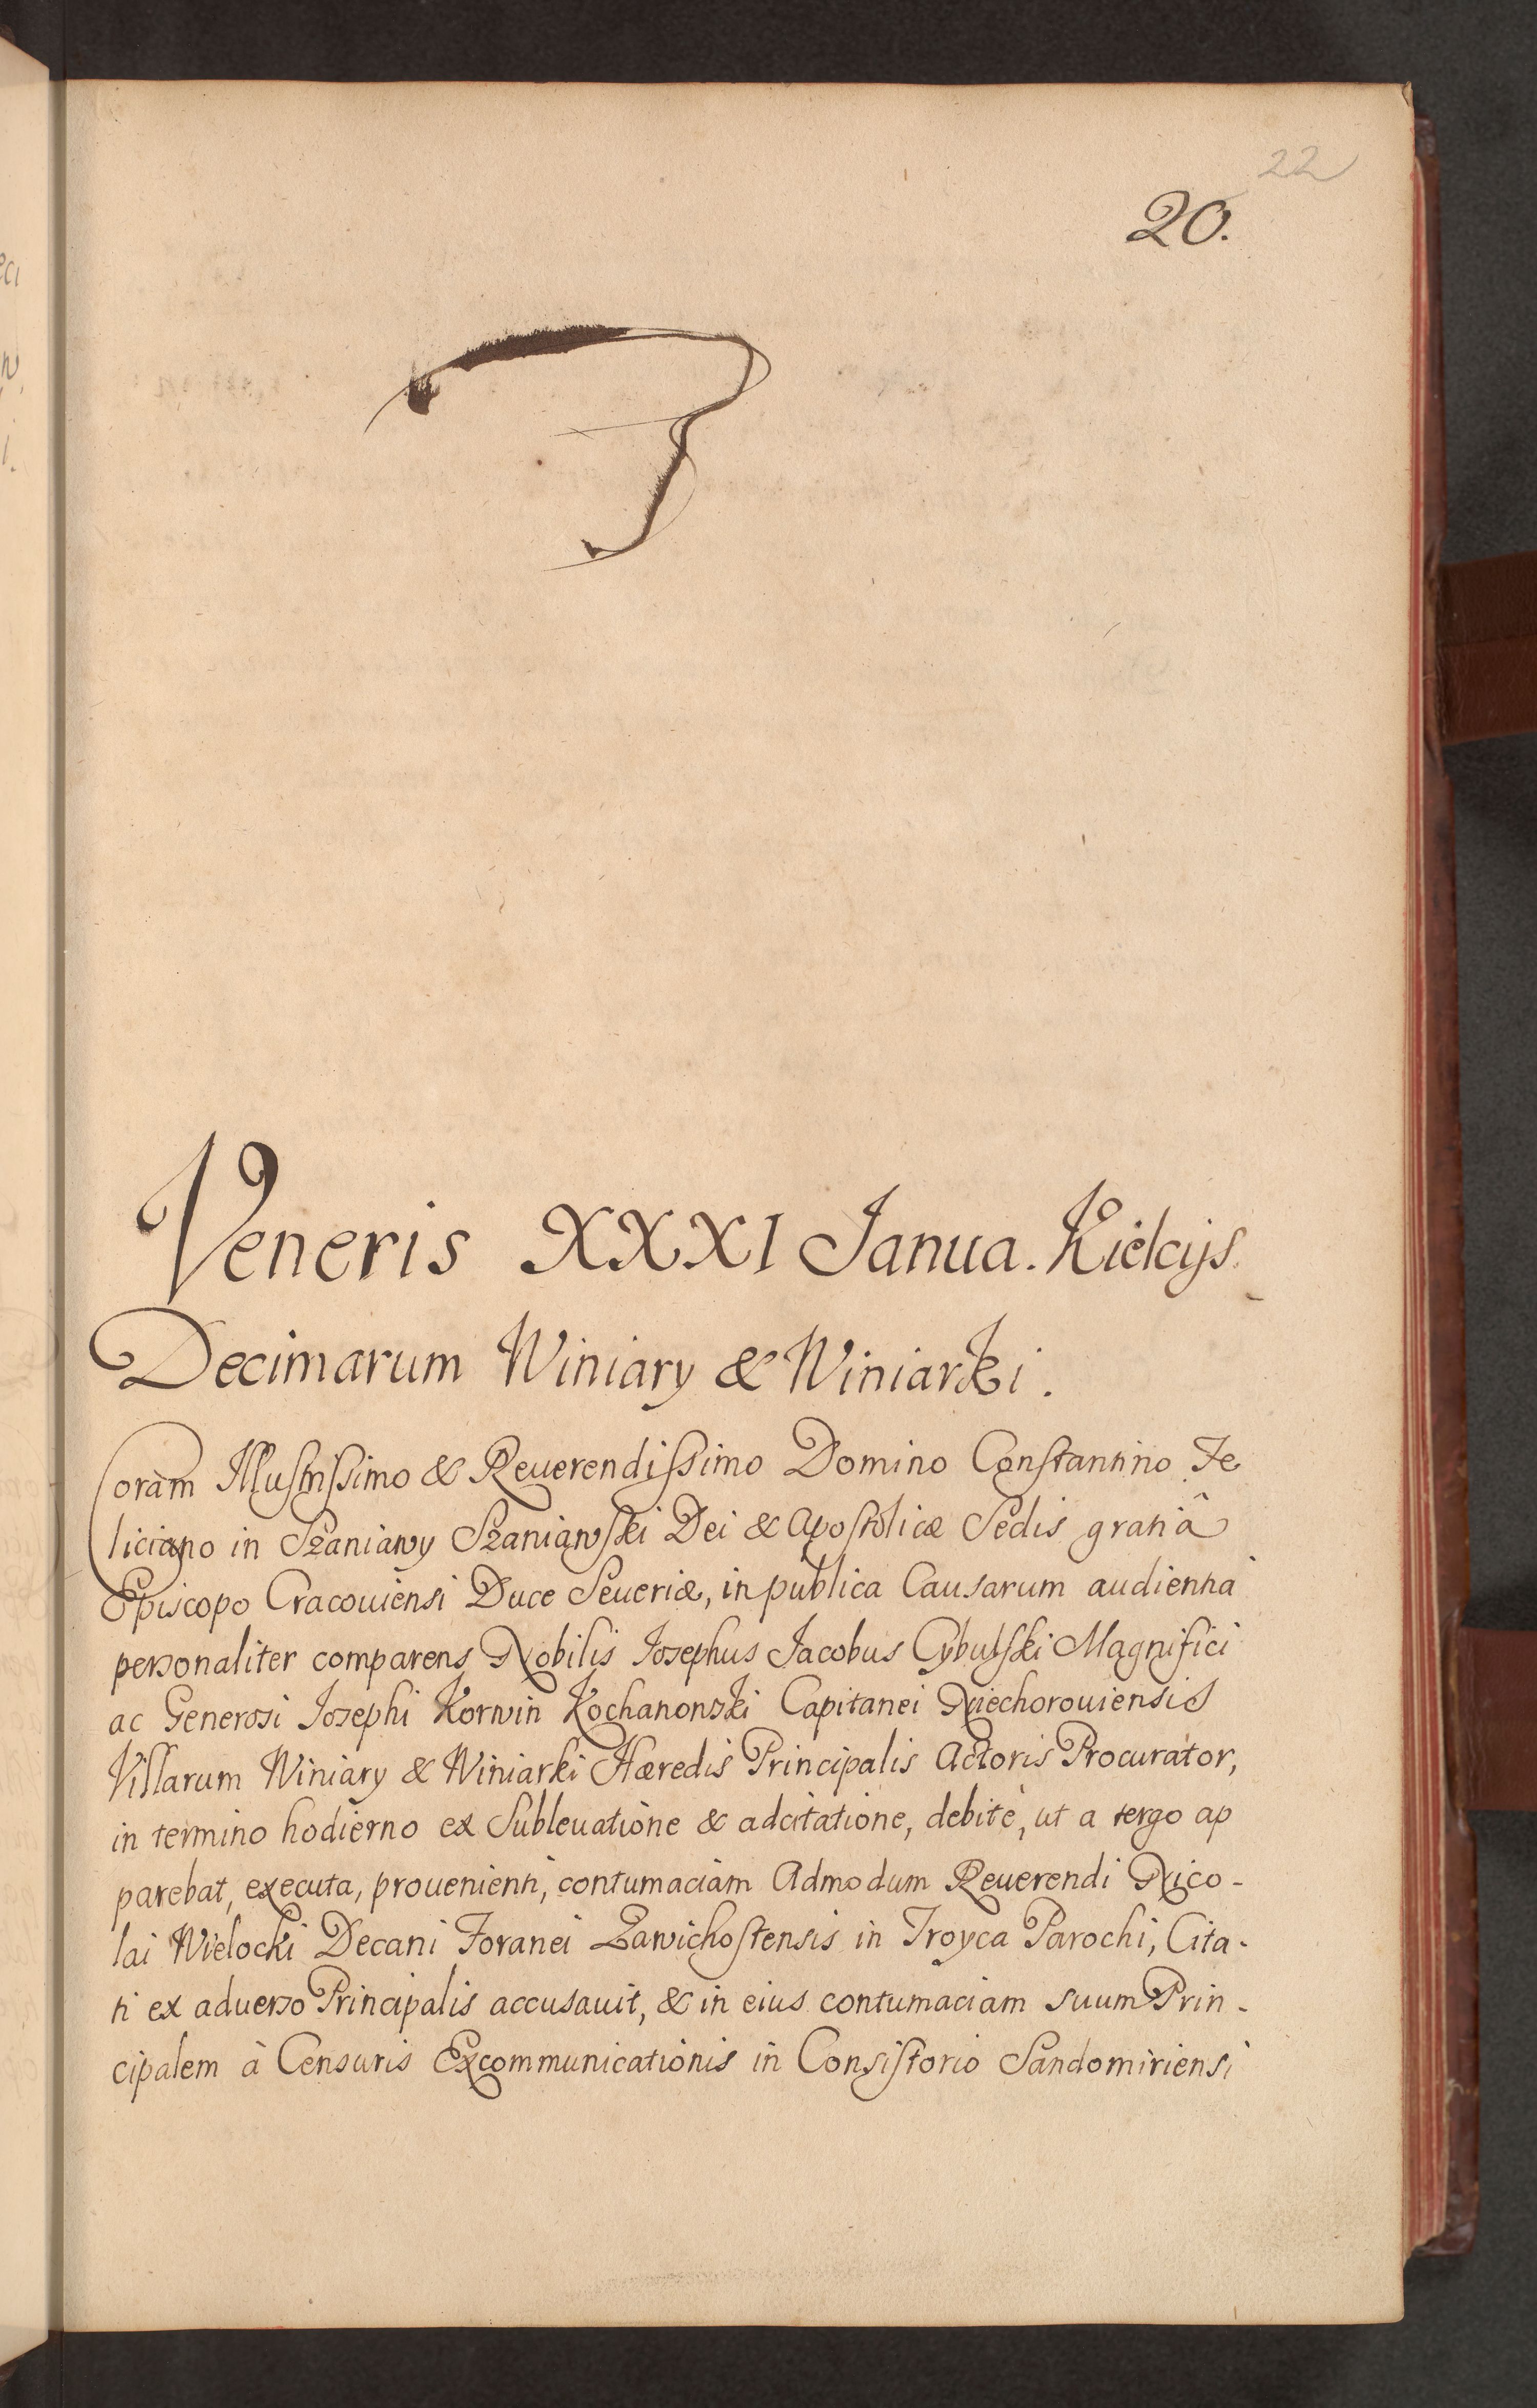 22
20.
Veneris XXXI Janua. Kielcijs.
Decimarum Winiary & Winiarki.
Coram Illustrissimo & Reuerendissimo Domino Constantino Fe
liciano in Szaniawy Szaniawski Dei & Apostolicæ Sedis gratiâ
Episcopo Cracouiensi Duce Seueriæ, in publica Causarum audientia
personaliter comparens Nobilis Josephus Jacobus Cybulski Magnifici
ac Generosi Josephi Korwin Kochanowski Capitanei Niechorouiensis
Villarum Winiary & Winiarki Hæredis Principalis Actoris Procurator,
in termino hodierno ex Subleuatione & adcitatione, debitè, ut a tergo ap
parebat, executa, prouenienti, contumaciam Admodum Reuerendi Nico-
lai Wielocki Decani Foranei Zawichostensis in Troyca Parochi, Cita-
ti ex aduerso Principalis accusauit, & in eius contumaciam suum Prin-
cipalem à Censuris Excommunicationis in Consistorio Sandomiriensi